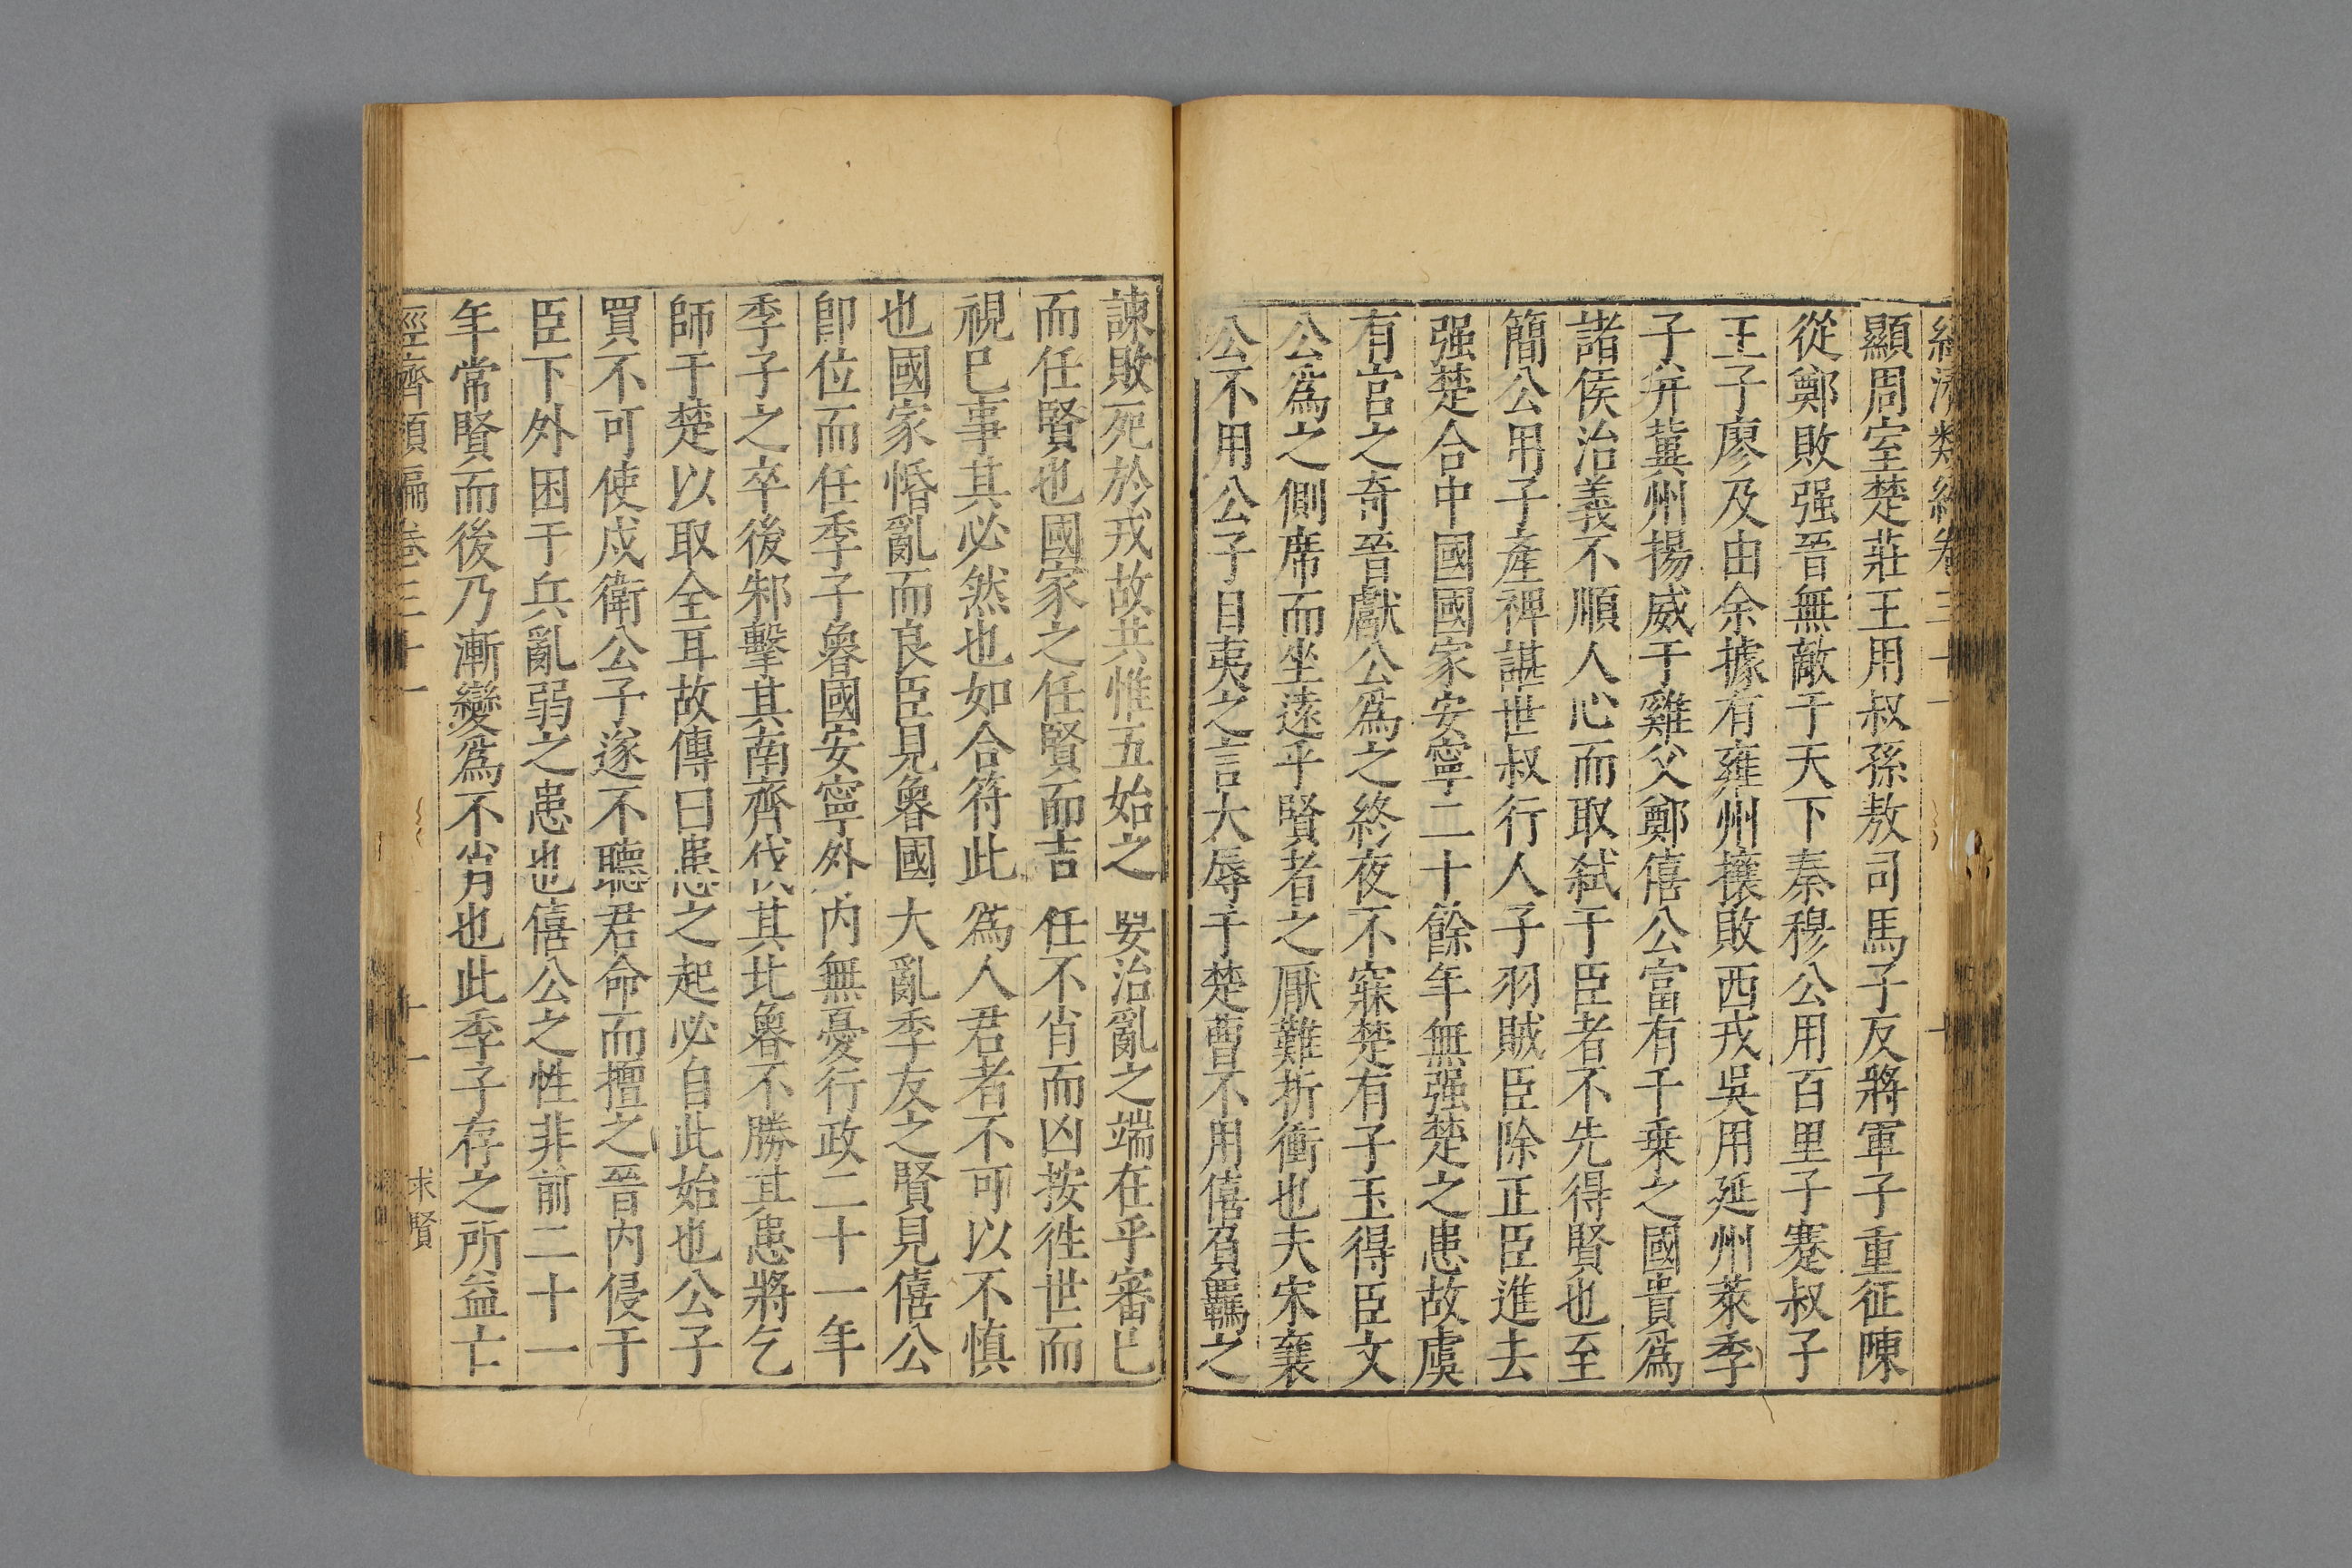 經濟類編卷三十一 十
顯周室楚莊王用叔孫敖司馬子反將軍子重征陳
從鄭敗强晉無敵于天下秦穆公用百里子蹇叔子
王子廖及由余據有雍州攘敗西戎吳用延州萊季
子并冀州揚威于雞父鄭僖公富有千乗之國貴爲
諸侯治義不順人心而取弑于臣者不先得賢也至
簡公用子產禆諶世叔行人子羽賊臣除正臣進去
强楚合中國國家安寧二十餘年無强楚之患故虞
有宫之奇晉獻公爲之終夜不寐楚有子玉得臣文
公爲之側席而坐遠乎賢者之厭難折衝也夫宋襄
公不用公子目夷之言大辱于楚曹不用僖負羈之
諫敗死於戎故共惟五始之要治亂之端在乎審己
而任賢也國家之任賢而吉任不肖而凶按徃世而
視已事其必然也如合符此爲人君者不可以不慎
也國家惛亂而良臣見魯國大亂季友之賢見僖公
即位而任季子魯國安寧外内無憂行政二十一年
季子之卒後邾擊其南齊伐其北魯不勝其患將乞
師于楚以取全耳故傳曰患之起必自此始也公子
買不可使戍衛公子遂不聽君命而擅之晉内侵于
臣下外困于兵亂弱之患也僖公之性非前二十一
年常賢而後乃漸變爲不肖也此季子存之所益亡
經濟類編卷三十一 十一 求賢